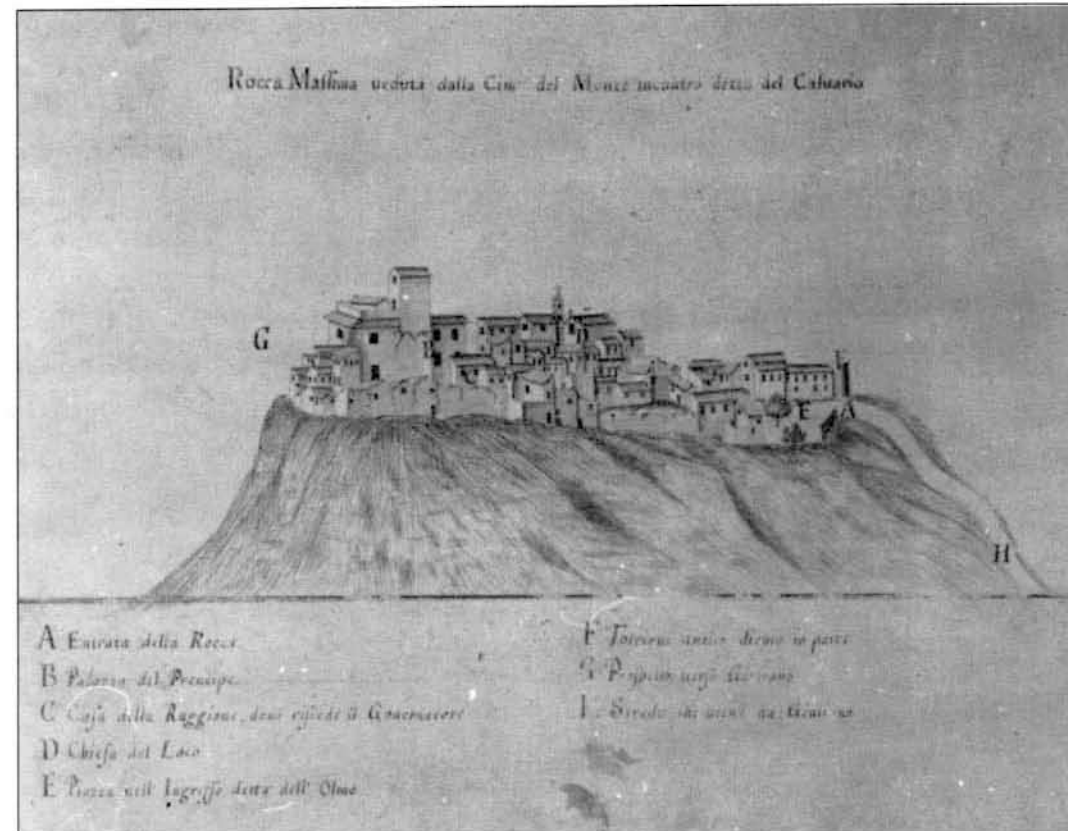 Rocca Massima veduta dalla Cima del Monte incontro detto del Caluario
G
E A
H
A Entrata della Rocca
B Palazzo del Prencipe
C Casa della Raggione, doue risiede il Gouernatore
D Chiesa del Loco
E Piazza nell Ingresso detta dell' Olmo
F antico in parte
G uerso
Strada che uiene da